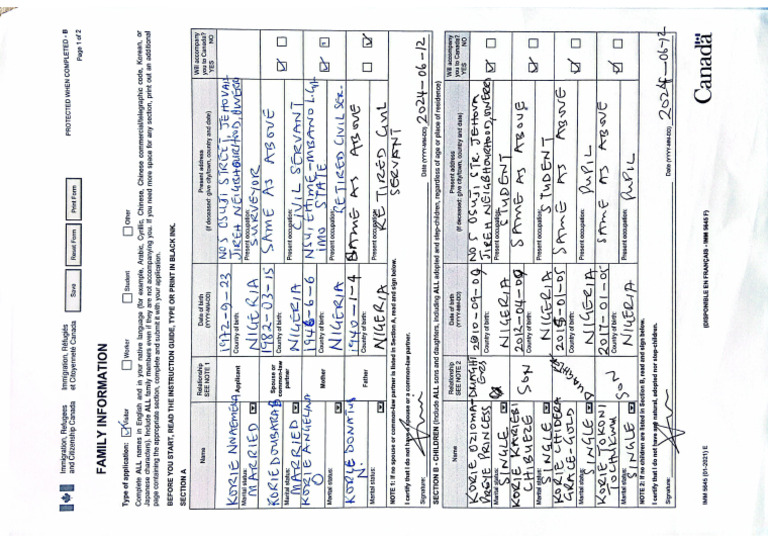 PROTECTED WHEN COMPLETED - B
Page 1 of 2
Immigration, Refugees and Citizenship Canada
Immigration, Réfugiés et Citoyenneté Canada
Save
Reset Form
Print Form
FAMILY INFORMATION
Type of application:
Visitor
Worker
Student
Other
Complete ALL names in English and in your native language (for example, Arabic, Cyrillic, Chinese, Chinese commercial/telegraphic code, Korean, or
Japanese characters). Include ALL family members even if they are not accompanying you. If you need more space for any section, print out an additional
page containing the appropriate section, complete and submit it with your application.
BEFORE YOU START, READ THE INSTRUCTION GUIDE, TYPE OR PRINT IN BLACK INK.
SECTION A
Name
Relationship
SEE NOTE 1
Date of birth
(YYYY-MM-DD)
Present address
(If deceased: give city/town, country and date)
Will accompany
you to Canada?
YES NO
KORIE NNAEMEKA
Applicant
1972-9-23
NO 5 OSUJI STREET, JEHOVAH
JIREH NEIGHBOURHOOD, OWERRI
Marital status:
MARRIED
Country of birth:
NIGERIA
Present occupation:
SURVEYOR
KORIE
Spouse or
common-law
partner
1982-03-15
SAME AS ABOVE
Marital status:
MARRIED
Country of birth:
NIGERIA
Present occupation:
CIVIL SERVANT
KORIE ANGELINA
O
Mother
1946-6-6
IMO STATE
Marital status:
Country of birth:
NIGERIA
Present occupation:
RETIRED CIVIL SER-
KORIE DONATUS
N.
Father
1940-1-4
SAME AS ABOVE
Marital status:
Country of birth:
NIGERIA
Present occupation:
RETIRED CIVIL
SERVANT
NOTE 1: If no spouse or common-law partner is listed in Section A, read and sign below.
I certify that I do not have a spouse or a common-law partner.
Signature:
Date (YYYY-MM-DD)
2024-06-12
SECTION B - CHILDREN (include ALL sons and daughters, including ALL adopted and step-children, regardless of age or place of residence)
Name
Relationship
SEE NOTE 2
Date of birth
(YYYY-MM-DD)
Present address
(If deceased: give city/town, country and date)
Will accompany
you to Canada?
YES NO
KORIE OZIOMA
PRINCESS
2010-09-09
NO 5 OSUJI STR JEHOVA
JIREH NEIGHBOURHOOD, OWERRI
Marital status:
SINGLE
Country of birth:
NIGERIA
Present occupation:
STUDENT
KORIE
SON
SAME AS ABOVE
Marital status:
SINGLE
Country of birth:
NIGERIA
Present occupation:
STUDENT
KORIE CHIDERA
GRACE-GOLD
2015-01-05
SAME AS ABOVE
Marital status:
SINGLE
Country of birth:
NIGERIA
Present occupation:
PUPIL
KORIE
SON
2017-01-05
SAME AS ABOVE
Marital status:
SINGLE
Country of birth:
NIGERIA
Present occupation:
PUPIL
NOTE 2: If no children are listed in Section B, read and sign below.
I certify that I do not have any natural, adopted nor step-children.
Signature:
Date (YYYY-MM-DD)
2024-06-12
IMM 5645 (01-2021) E
(DISPONIBLE EN FRANÇAIS - IMM 5645 F)
Canada